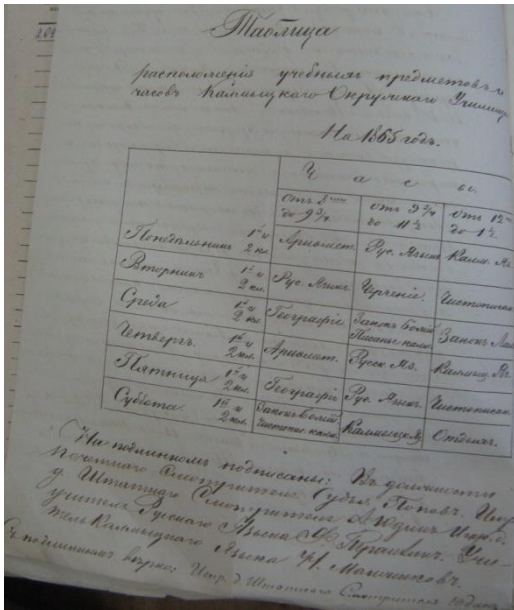 Таблица
расположенія учебныхъ предметовъ и
часовъ Калмыцкаго Окружнаго Училища
На 1865 годъ.
Часы.
отъ 8 до 9¾ отъ 9¾ до 11½ отъ 12 до 1½
Понедѣльникъ 1й и 2 кл. Арифмет. Рус. Языкъ Калм. Яз.
Вторникъ 1й и 2 кл. Рус. Языкъ Черченіе. Чистописан.
Среда 1й и 2 кл. Географія Законъ Божій Законъ
Четвергъ. 1й и 2 кл. Арифмет. Русск. Яз. Калмыц. Яз.
Пятница 1й и 2 кл. Географія Рус. Языкъ. Чистописан.
Суббота. 1й и 2 кл. Законъ Божій Чистопис. Калмыцк. Отдыхъ.
На подлинномъ подписаны: Въ должности
Почетнаго Смотрителя Поповъ. Испр.
д. Штатнаго Смотрителя
учителя Русскаго Языка Учи-
тель Калмыцкаго Языка
Съ подлиннымъ вѣрно: Испр. д. Штатнаго Смотрителя